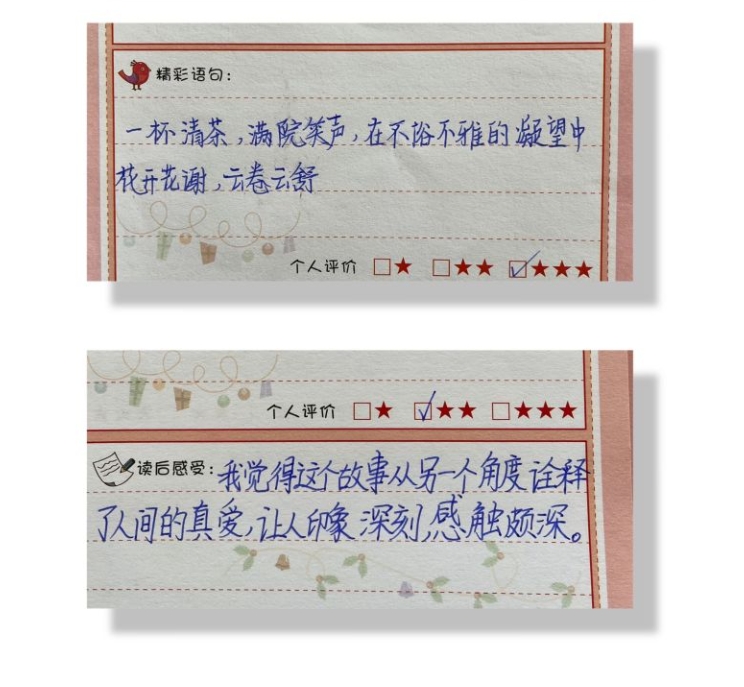 精彩语句:
一杯清茶,满院笑声,在不俗不雅的凝望中
花开花谢,云卷云舒
个人评价 □★ □★★ ☑★★★
个人评价 □★ ☑★★ □★★★
读后感受:我觉得这个故事从另一个角度诠释
了人间的真爱,让人印象深刻,感触颇深。